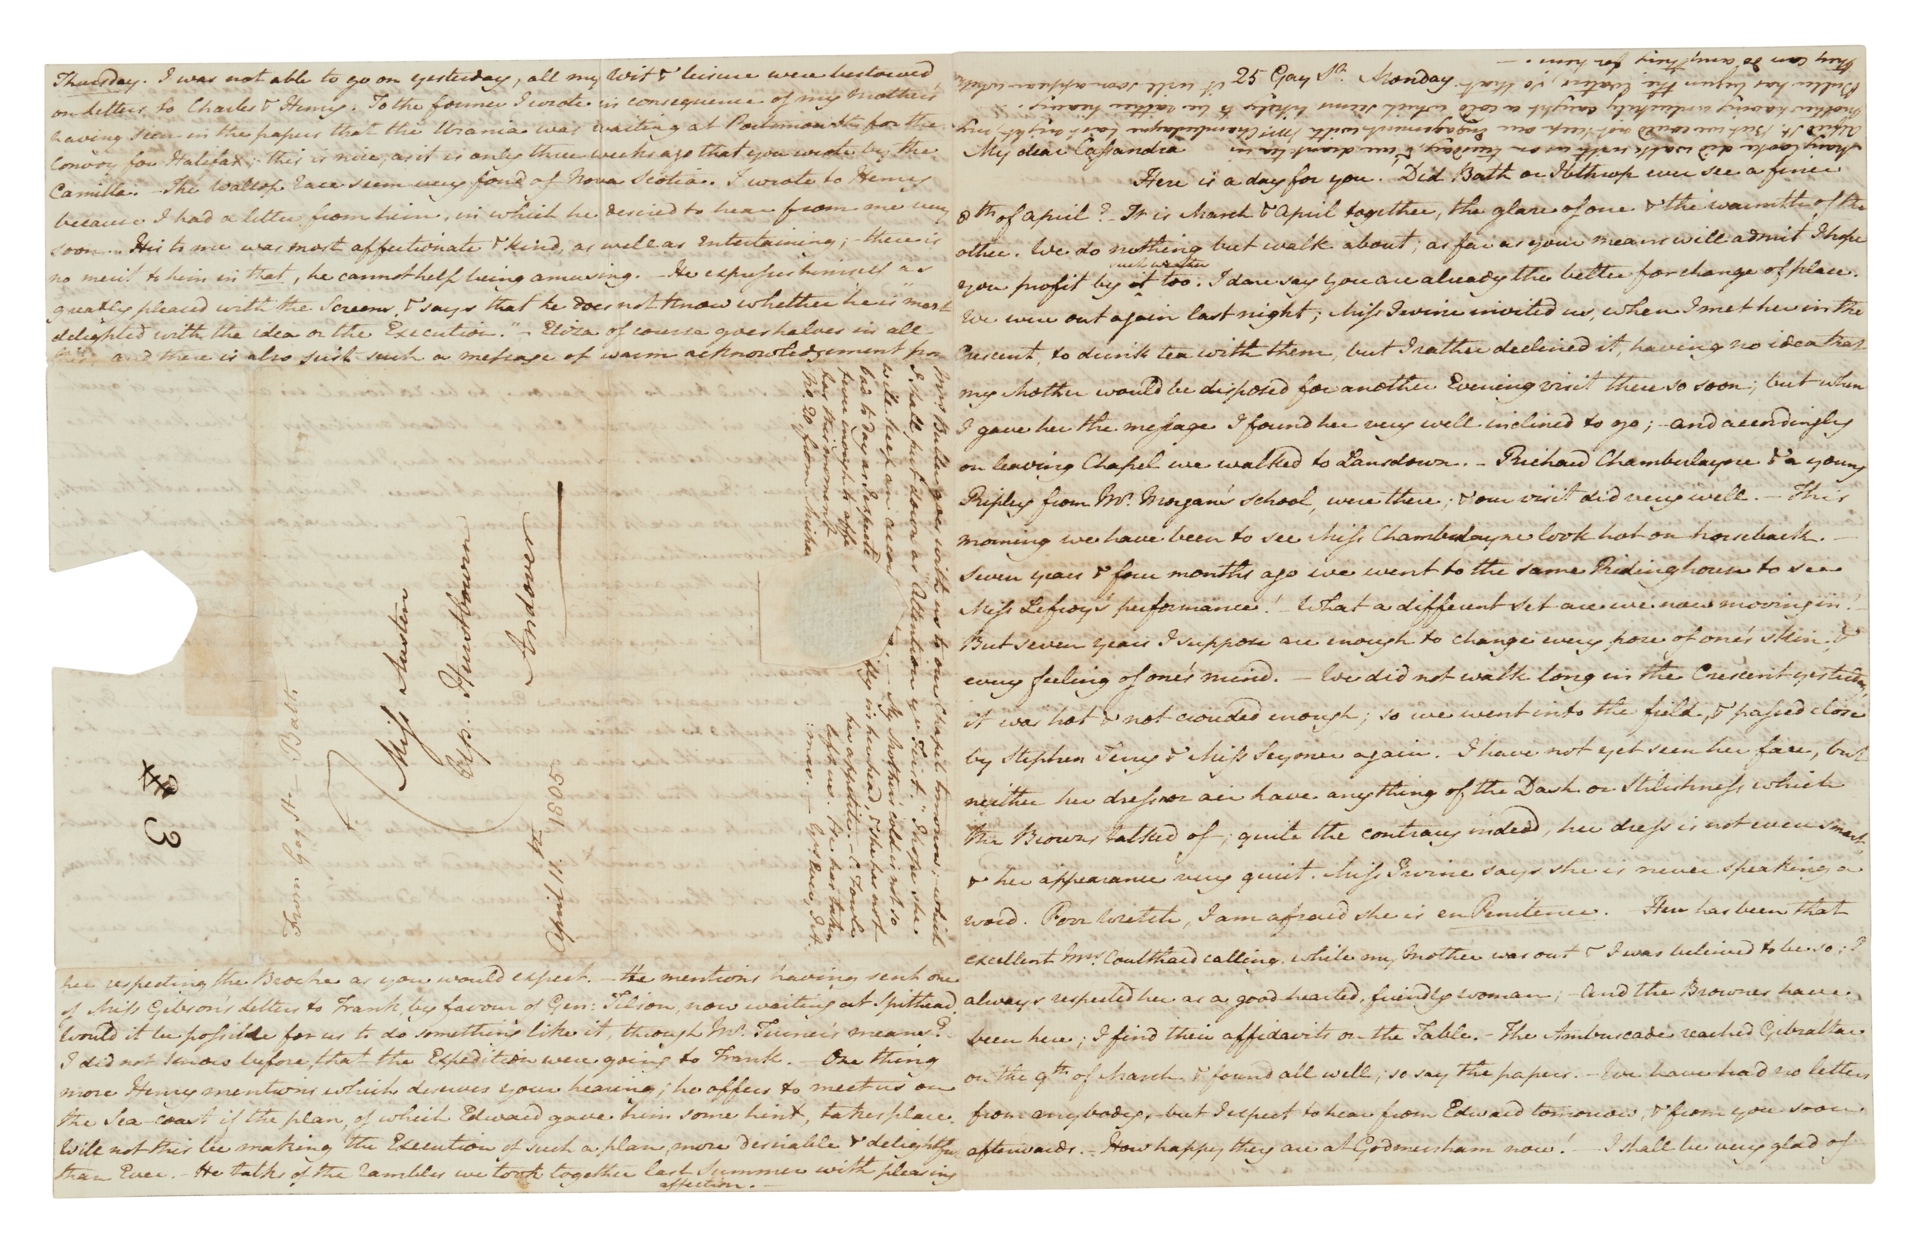 25 Gay St. Monday
My dear Cassandra
Here is a day for you. Did Bath or Ibthrop ever see a finer
8th of April? - It is March & April together, the glare of one & the warmth of the
other. We do nothing but walk about; as far as your means will admit I hope
you profit by such weather too. I dare say you are already the better for change of place.
We were out again last night; Miss Irvine invited us, when I met her in the
Crescent, to drink tea with them, but I rather declined it, having no idea that
my Mother would be disposed for another Evening visit there so soon; but when
I gave her the message I found her very well inclined to go; - and accordingly
on leaving Chapel we walked to Lansdown. - Richard Chamberlayne & a young
Ripley from Mr. Morgan's school, were there; & our visit did very well. - This
morning we have been to see Miss Chamberlayne look hot on horseback. -
Seven years & four months ago we went to the same Ridinghouse to see
Miss Lefroy's performance! - What a different set are we now moving in!
But seven years I suppose are enough to change every pore of one's skin, &
every feeling of one's mind. - We did not walk long in the Crescent yesterday,
it was hot & not crouded enough; so we went into the field, & passed close
by Stephen Terry & Miss Seymer again. I have not yet seen her face, but
neither her dress or air have anything of the Dash or Stilishness which
the Browns talked of; quite the contrary indeed, her dress is not even smart,
& her appearance very quiet. Miss Irvine says she is never speaking a
word. Poor Wretch, I am afraid she is en Penitence. - Here has been that
excellent Mrs. Coulthard calling, while my Mother was out & I was beleived to be so; I
always respected her as a good-hearted, friendly woman; - And the Brownes have
been here; I find their affidavits on the Table. - The Ambuscade reached Gibraltar
on the 9th of March & found all well; so say the papers. - We have had no letters
from anybody, - but I expect to hear from Edward tomorrow, & from you soon
afterwards. - How happy they are at Godmersham now! - I shall be very glad of
Thursday. I was not able to go on yesterday, all my Wit & leisure were bestowed
on letters to Charles & Henry. To the former I wrote in consequence of my Mother's
having seen in the papers that the Urania was waiting at Portsmouth for the
Convoy for Halifax; - this is nice, as it is only three weeks ago that you wrote by the
Camilla. - The Wallop race seem very fond of Nova Scotia. I wrote to Henry
because I had a letter from him, in which he desired to hear from me very
soon. - His to me was most affectionate & kind, as well as entertaining; - there is
no merit to him in that, he cannot help being amusing. - He expresses himself as
greatly pleased with the Screen, & says that he does not know whether he is "most
delighted with the idea or the Execution." - Eliza of course goes halves in all
this, and there is also just such a message of warm acknowledgement from
her respecting the Broche as you would expect. - He mentions having sent one
of Miss Gibson's Letters to Frank, by favour of Gen: Tilson, now waiting at Spithead.
Would it be possible for us to do something like it, through Mr. Turner's means? -
I did not know before, that the Expedition were going to Frank. - One thing
more Henry mentions which deserves your hearing; he offers to meet us on
the Sea-coast if the plan, of which Edward gave him some hint, takes place.
Will not this be making the Execution of such a plan, more desirable & delightful
than Ever. - He talks of the rambles we took together last Summer with pleasing
affection. -
Mary Cooke did walk with us on Tuesday, & we drank tea in
Alfred St. But we could not keep our Engagement with Mr Chamberlayne last night, my
Mother having unluckily caught a cold which seems likely to be rather heavy.
Buller has begun the Waters, so that it will soon appear whether
they can do anything for him. -
Mrs. Buller goes with us to our Chapel tomorrow; - which
I shall put down as Attention ye First. I hope she
will keep an accou - My Mother's cold is not so
bad to day as I expecte fly in her head, & she has not
fever enough to affe her appetite. - C. Fowle
has this moment left us. He has taken
No. 20 from Michae :mas. - Yrs Ever, J.A.
Miss Austen
Ibthrop
Andover
April 11th 1805
From Gay St. - Bath
3